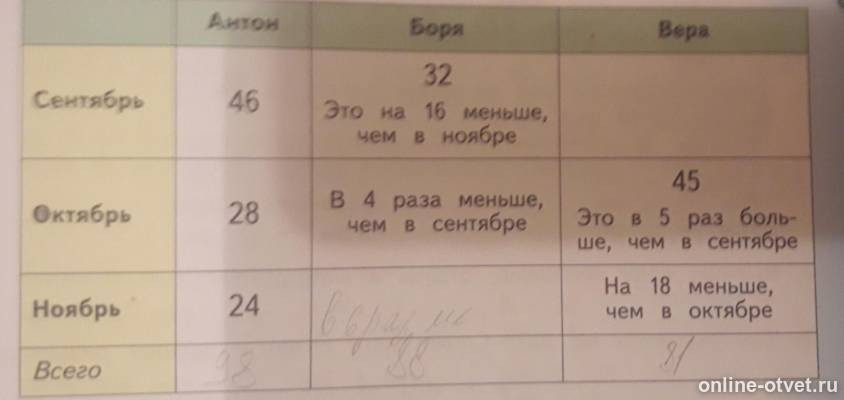 Антон Боря Вера
Сентябрь 46 32
Это на 16 меньше,
чем в ноябре
Октябрь 28 В 4 раза меньше,
чем в сентябре
45
Это в 5 раз боль-
ше, чем в сентябре
Ноябрь 24 На 18 меньше,
чем в октябре
Всего 98 88
online-otvet.ru